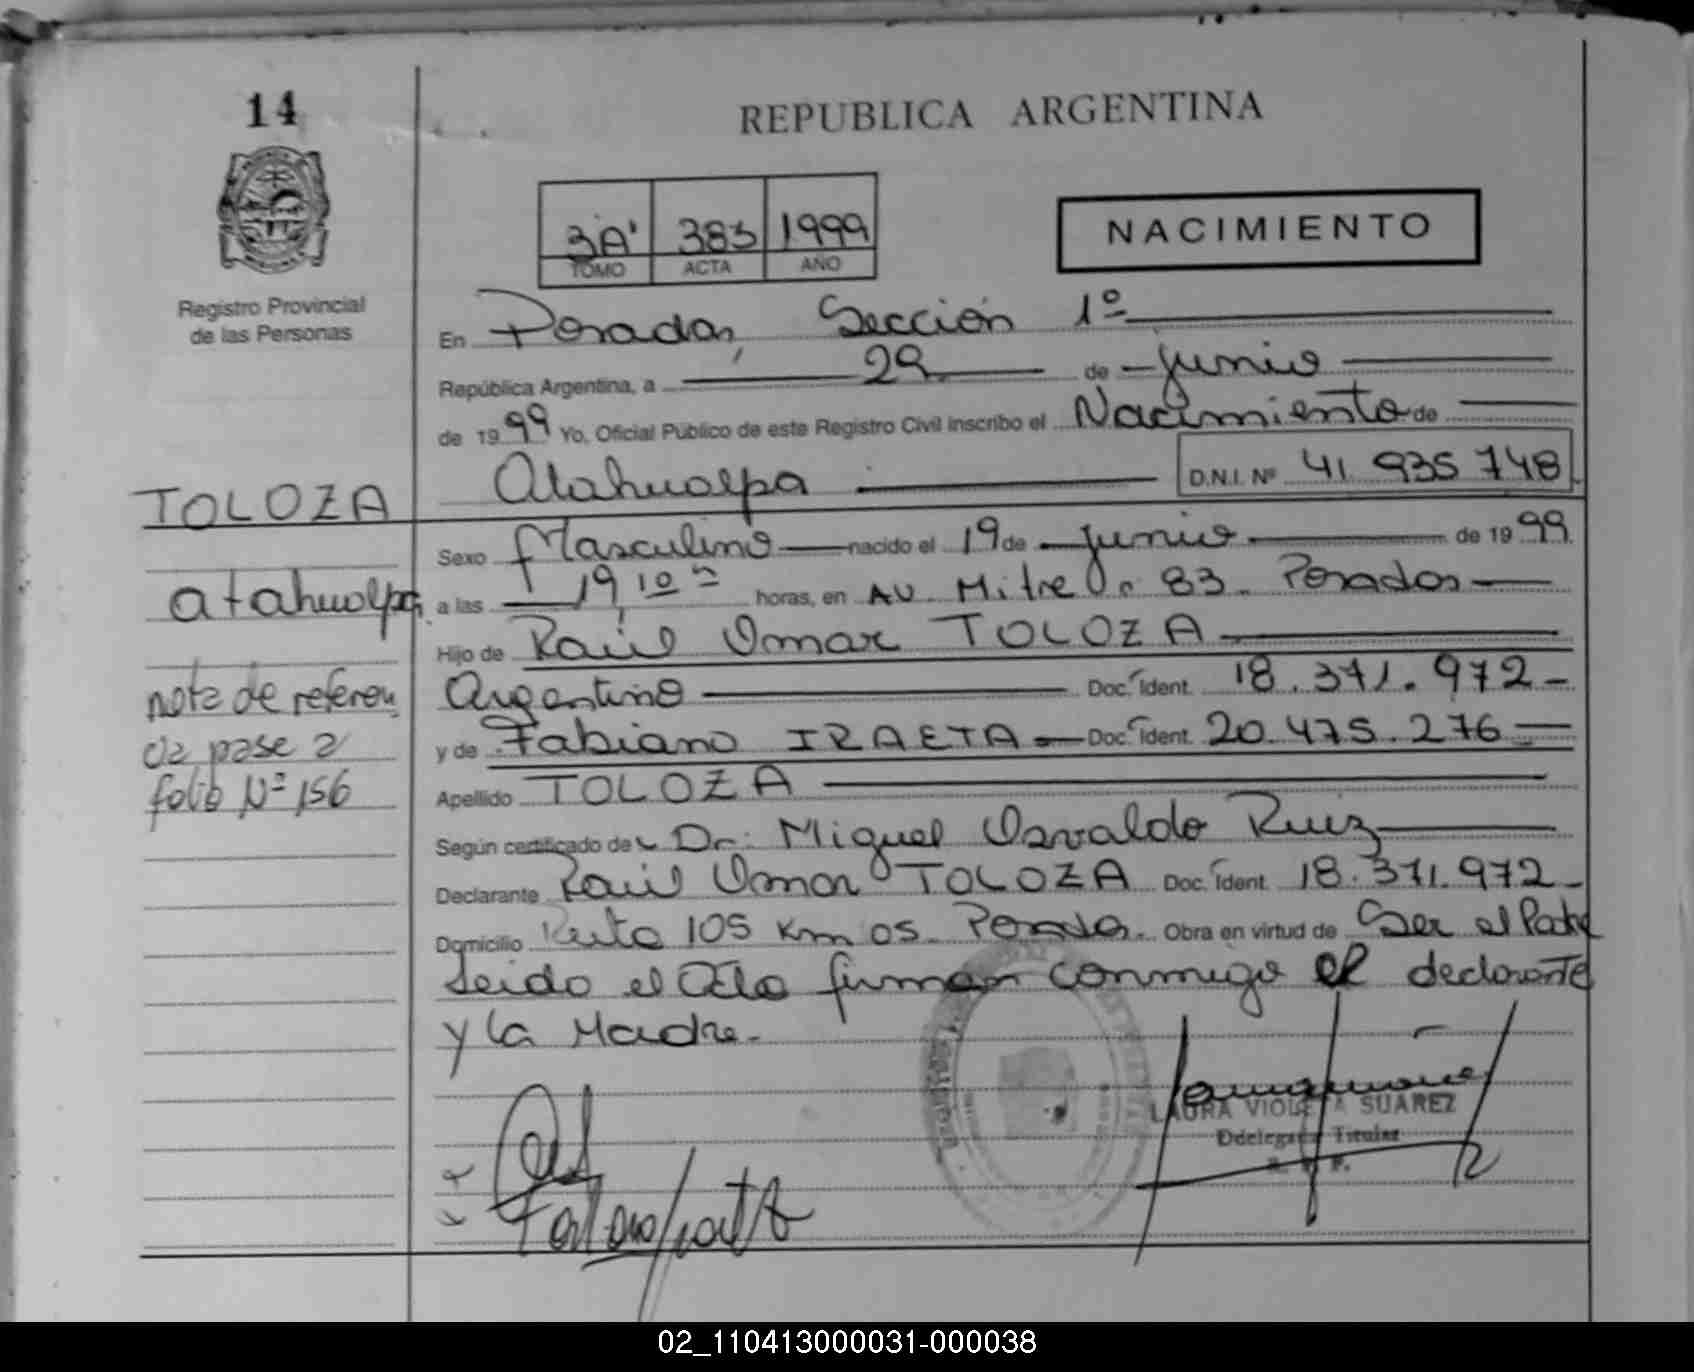 14
REPUBLICA ARGENTINA
3"A" 383 1999
TOMO ACTA AÑO
NACIMIENTO
Registro Provincial
de las Personas
En Posadas, Sección 1º
República Argentina, a 29 de Junio
de 1999 Yo, Oficial Público de este Registro Civil inscribo el Nacimiento de
Atahualpa D.N.I. Nº 41 935 748
TOLOZA
Sexo Masculino nacido el 19 de Junio de 1999
Atahualpa
a las 19,10 horas, en AV. Mitre 83. Posadas
Hijo de Raúl Omar TOLOZA
Argentino Doc. Ident. 18.371.972
nota de referen
cia pase a
folio Nº 156
y de Fabiana IRAETA Doc. Ident. 20.475.276
Apellido TOLOZA
Según certificado de Dr. Miguel Osvaldo Ruiz
Declarante Raúl Omar TOLOZA Doc. Ident. 18.371.972
Domicilio Ruta 105 Km 05. Posadas. Obra en virtud de Ser el Padre
Leido el Acta firman conmigo el declarante
y la Madre.
LAURA VIOLETA SUAREZ
Ddelegada Titular
02_110413000031-000038